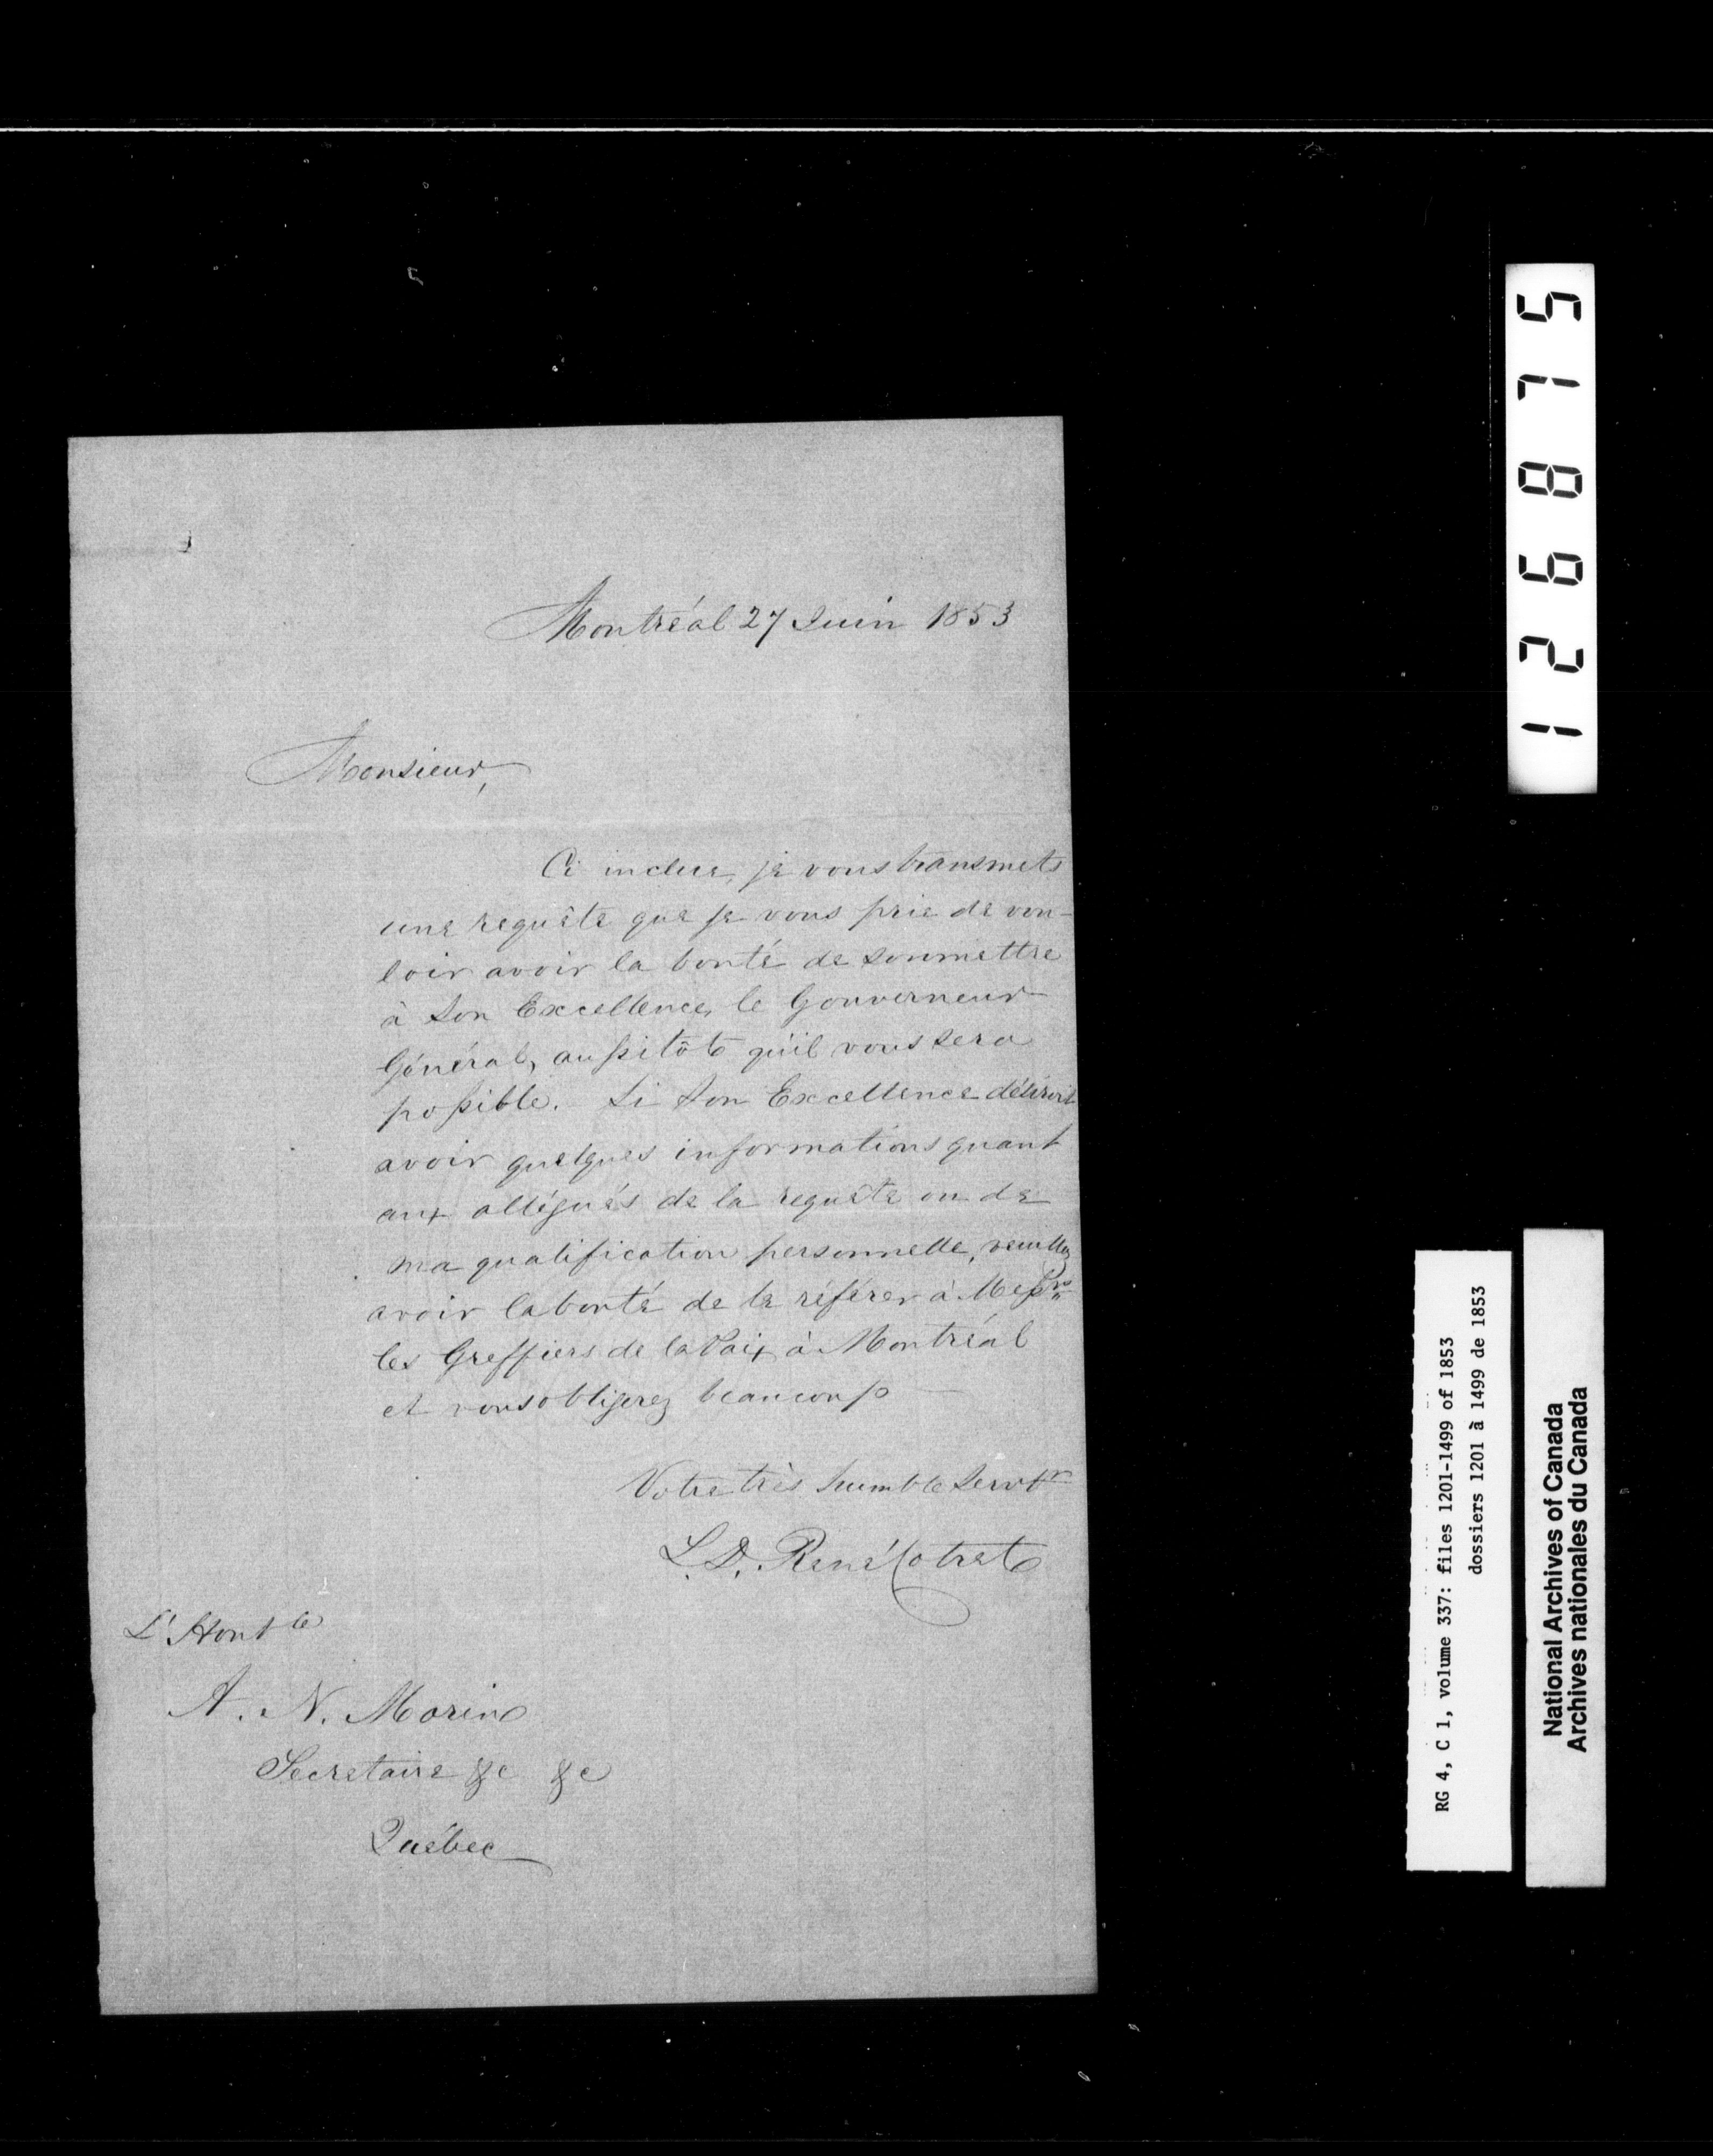 Montréal 27 Juin 1853
Monsieur,
Ci incluse, je vous transmets
une requête que je vous prie de vou-
loir avoir la bonté de soumettre
à Son Excellence, le Gouverneur
Général, aussitôt qu'il vous sera
possible. Si Son Excellence désiroit
avoir quelques informations quant
aux allégués de la requête ou de
ma qualification personnelle, veuillez
avoir la bonté de le référer à Messrs
les Greffiers de la Paix à Montréal
et vous obligerez beaucoup
Votre très humble Servtr
L. D. René Cotret
L'Honble
A. N. Morin
Secretaire &c &c
Québec
126875
RG 4, C 1, volume 337: files 1201-1499 of 1853
dossiers 1201 à 1499 de 1853
National Archives of Canada
Archives nationales du Canada